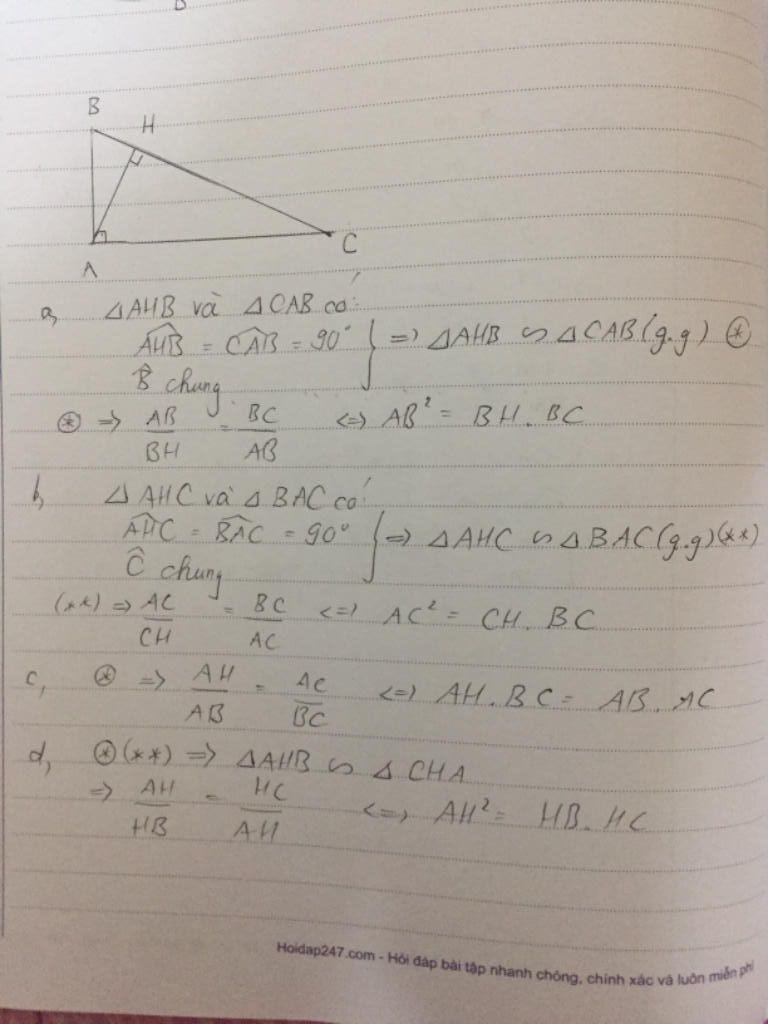 B
H
C
A
a, △AHB và △CAB có:
\widehat{AHB} = \widehat{CAB} = 90° } => △AHB ∽ △CAB (g.g) ⊛
\hat{B} chung
⊛ => AB/BH = BC/AB <=> AB² = BH. BC
b, △AHC và △BAC có:
\widehat{AHC} = \widehat{BAC} = 90° } => △AHC ∽ △BAC (g.g) (**)
\hat{C} chung
(**) => AC/CH = BC/AC <=> AC² = CH. BC
c, ⊛ => AH/AB = AC/BC <=> AH. BC = AB. AC
d, ⊛ (**) => △AHB ∽ △CHA
=> AH/HB = HC/AH <=> AH² = HB. HC
Hoidap247.com - Hỏi đáp bài tập nhanh chóng, chính xác và luôn miễn phí